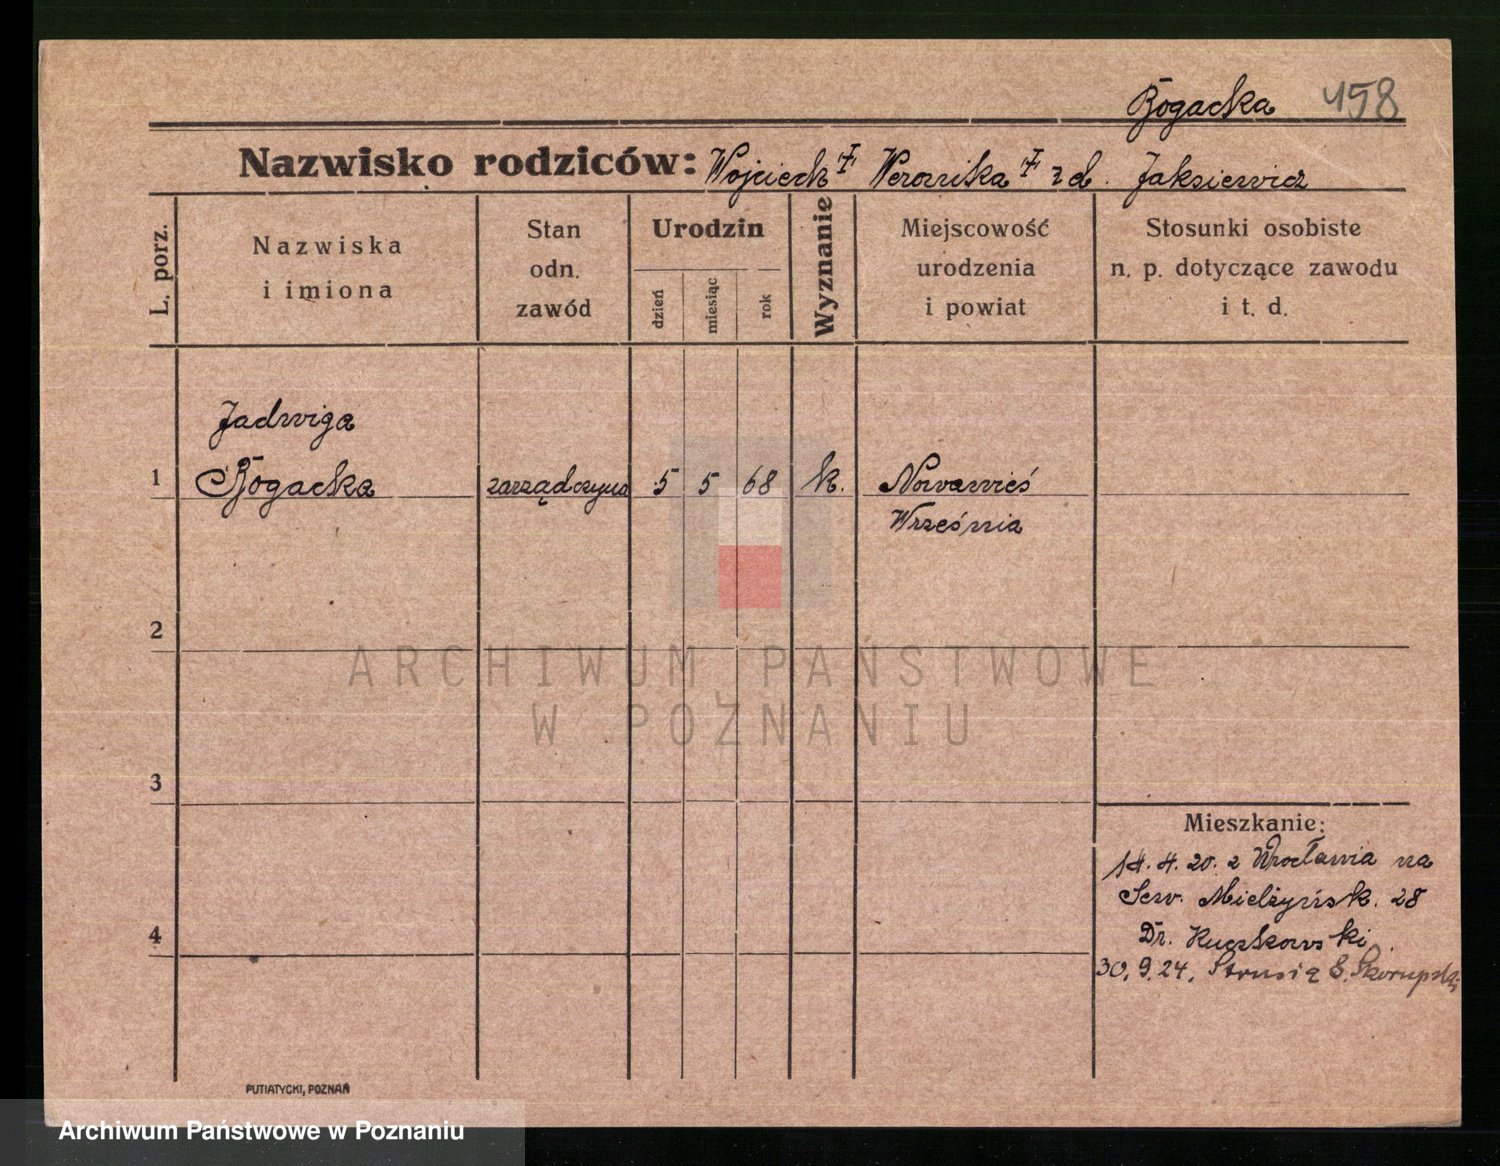 Bogacka 458
Nazwisko rodziców: Wojciech † Weronika † z d. Jaksiewicz
L. porz.
Nazwiska
i imiona
Stan
odn.
zawód
Urodzin
dzień
miesiąc
rok
Wyznanie
Miejscowość
urodzenia
i powiat
Stosunki osobiste
n. p. dotyczące zawodu
i t. d.
Jadwiga
1 Bogacka zarządczyna 5 5 68 k. Nowawieś
Września
2
ARCHIWUM PAŃSTWOWE
W POZNANIU
3
Mieszkanie:
14. 4. 20. z Wrocławia na
Sew. Mielżyńsk. 28
4
Dr. Kuczkowski
30. 9. 24. Strusia 8. Skorupska
PUTIATYCKI, POZNAŃ
Archiwum Państwowe w Poznaniu